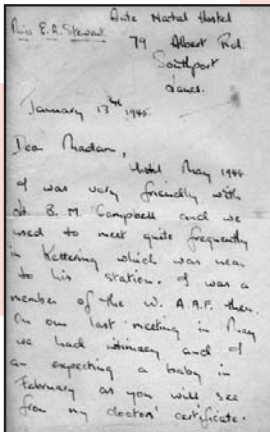 Miss E.A. Stewart.
Ante Natal Hostel
79 Albert Rd
Southport
Lancs.
January 13th 1945.
Dear Madam,
Until May 1944
I was very friendly with
Lt. B. M. Campbell and we
used to meet quite frequently
in Kettering which was near
to his station. I was a
member of the W.A.A.F. then.
On our last meeting in May
we had intimacy and I
am expecting a baby in
February as you will see
from my doctors' certificate.